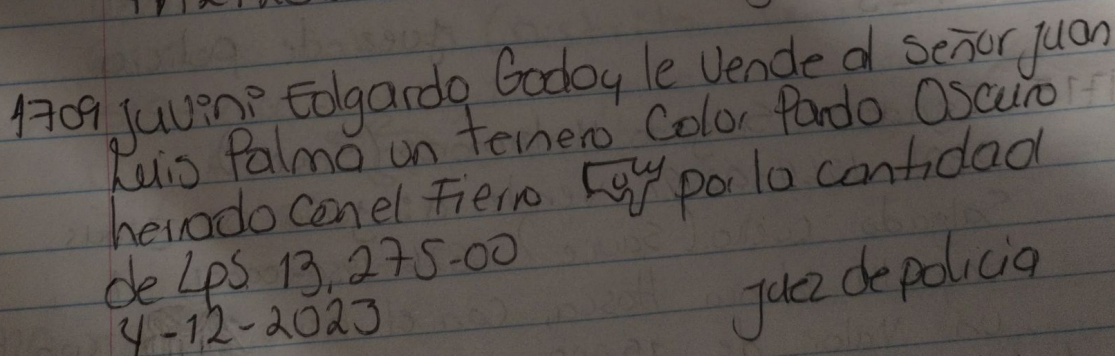 1709 Juvini Edgardo Godoy le vende al Señor Juan
Luis Palma un ternero Color Pardo Oscuro
herrado con el Fierro por la cantidad
de Lps 13,275-00
4-12-2023 juez de policia